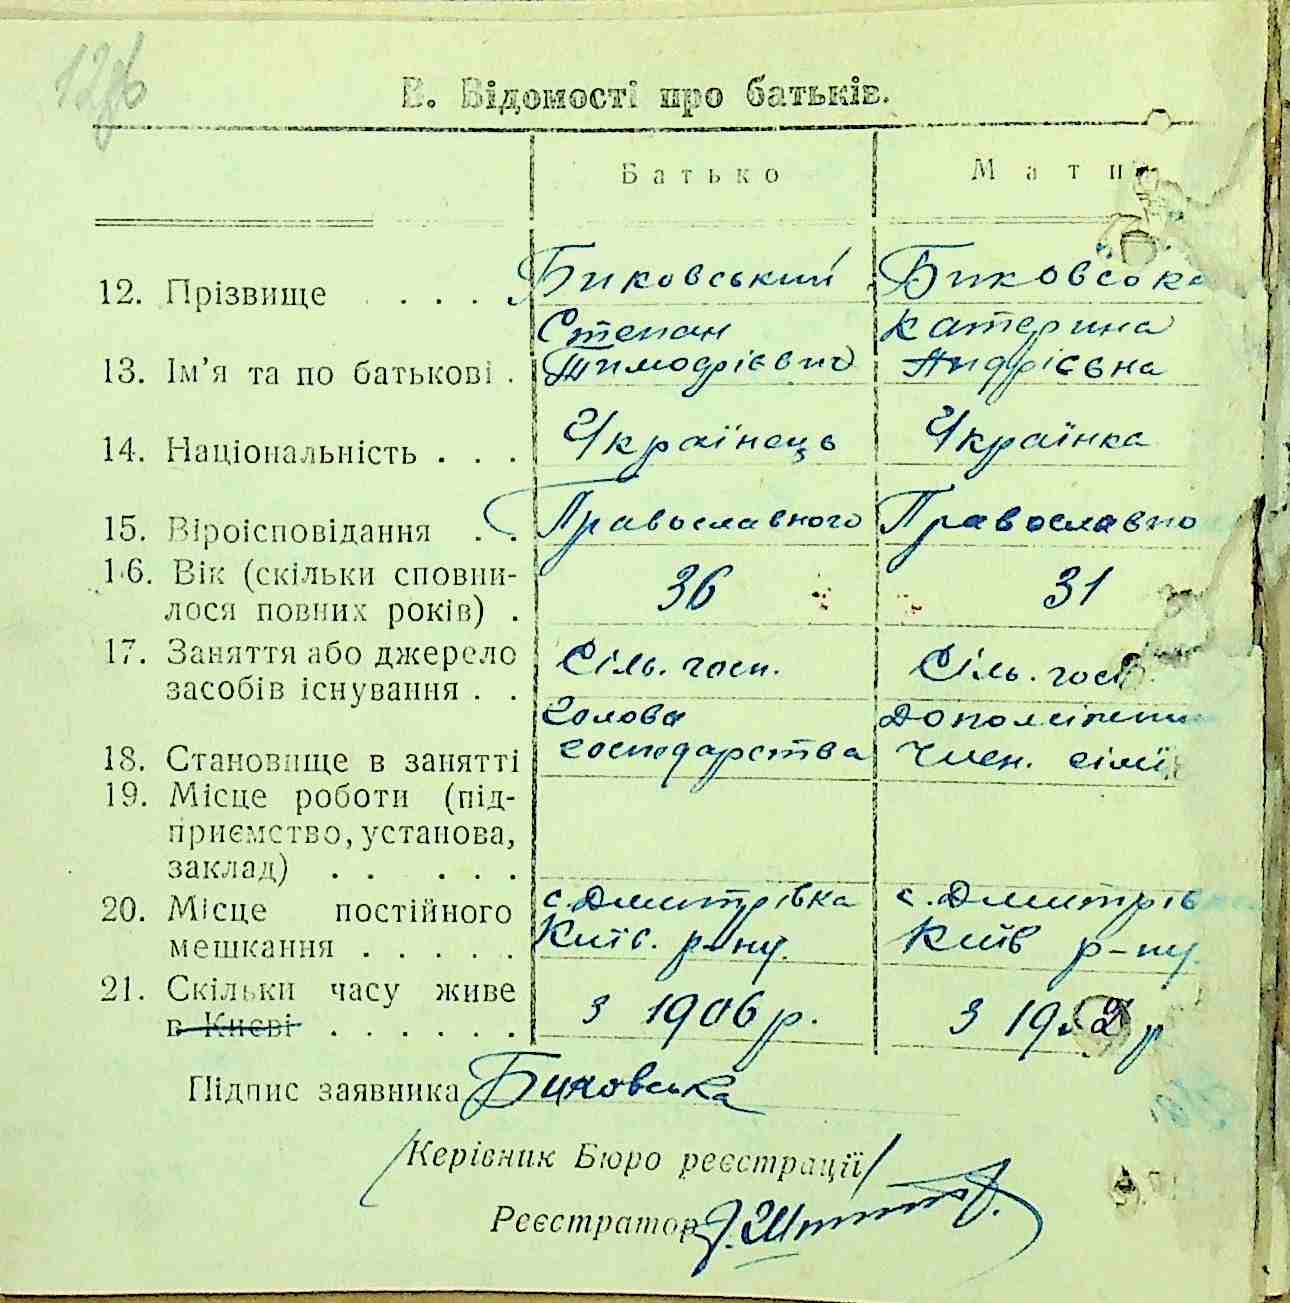 В. Відомості про батьків.
Батько Мати
12. Прізвище . . . . Биковський Биковська
Степан Катерина
13. Ім'я та по батькові . Тимофієвич Андрієвна
14. Національність . . . Українець Українка
15. Віроісповідання . . Православного Православно
16. Вік (скільки сповни-
лося повних років) . 36 31
17. Заняття або джерело
засобів існування . . Сіль. госп. Сіль. госп.
Голова
18. Становище в занятті господарства Член. сімї
19. Місце роботи (під-
приємство, установа,
заклад) . . . . .
20. Місце постійного с. Дмитрівка с. Дмитрів
мешкання . . . . . Київ. р-ну. Київ р-ну.
21. Скільки часу живе
в Києві . . . . . . з 1906 р. з 19 2 р
Підпис заявника Биковська
/Керівник Бюро реєстрації/
Реєстратор